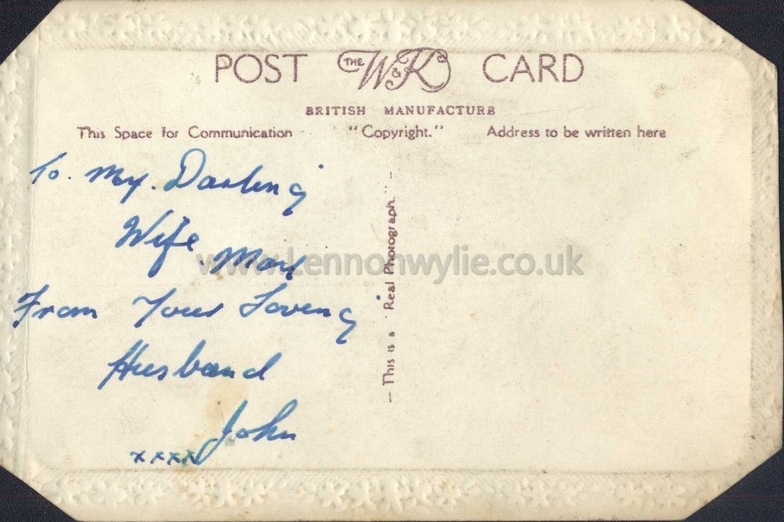 POST THE W & K CARD
BRITISH MANUFACTURE
This Space for Communication "Copyright." Address to be written here
To. My. Darling
Wife. Mary
From Your Loving
Husband
John
xxxx
This is a Real Photograph.
www.Lennonwylie.co.uk